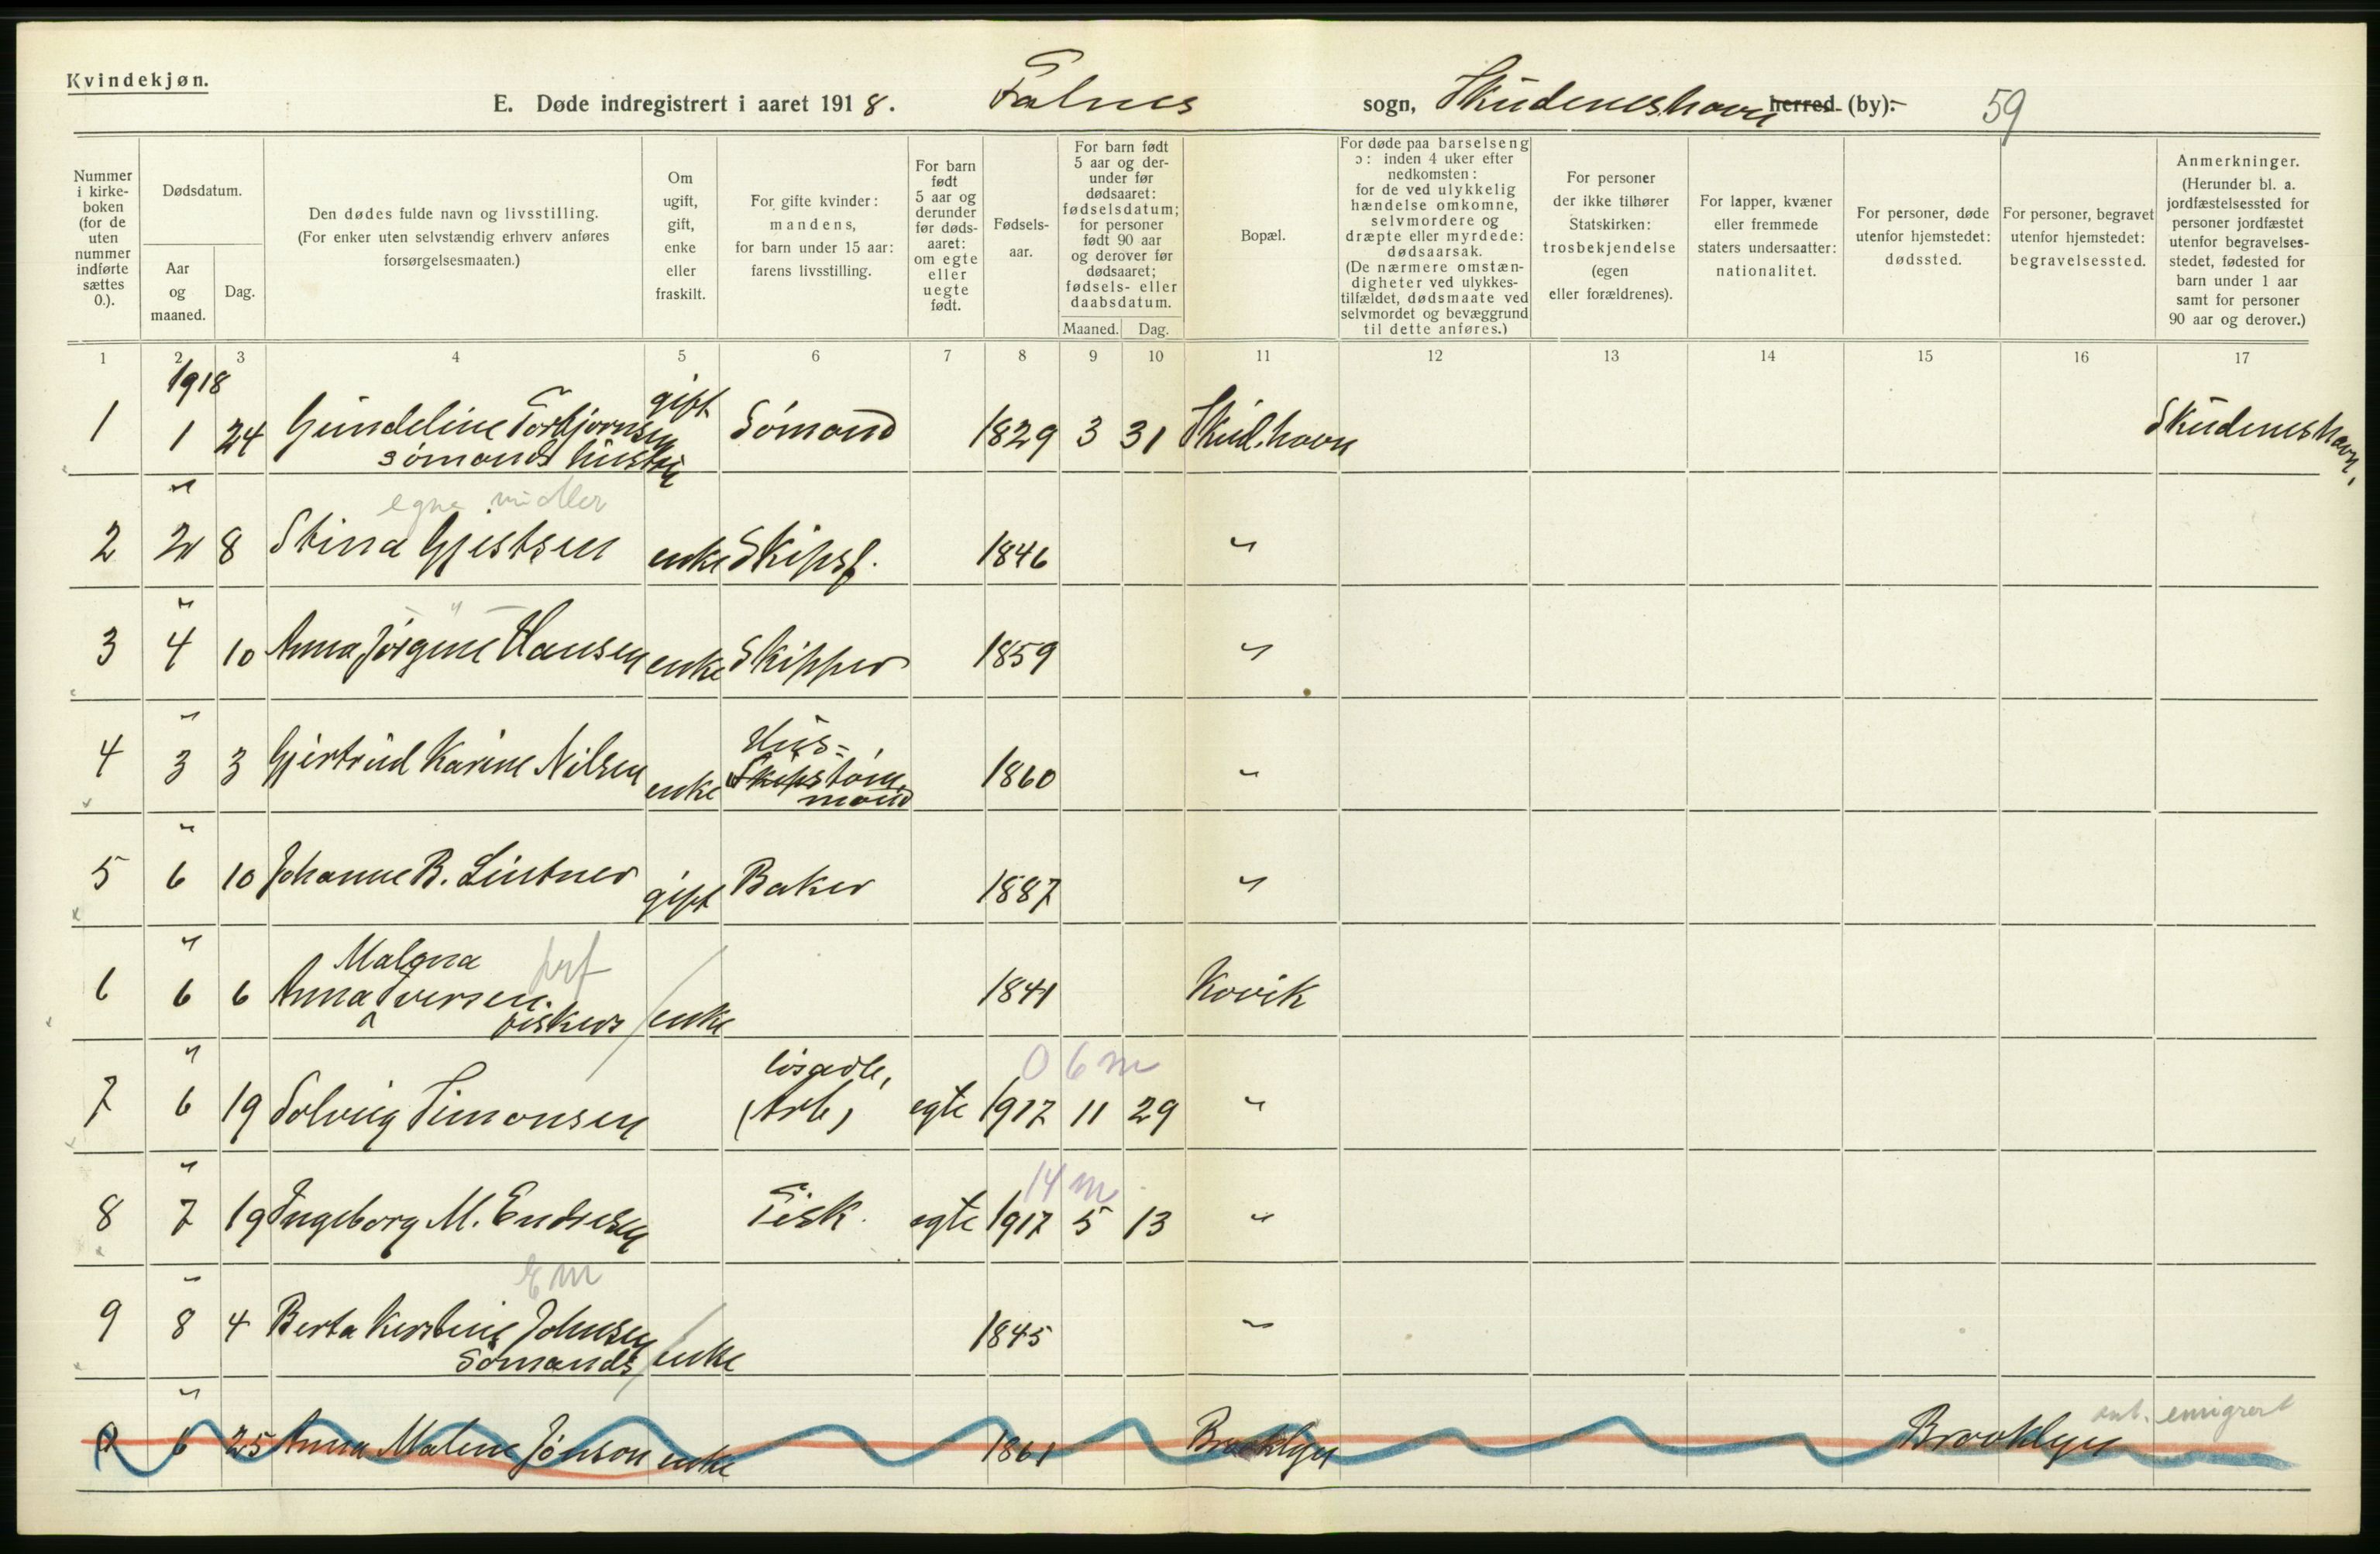 Kvindekjøn.
E. Døde indregistrert i aaret 1918. Falnes sogn, Skudeneshavn herred (by). 59
Nummer i kirkeboken (for de uten nummer indførte sættes 0.).
Dødsdatum.
Aar og maaned.
Dag.
Den dødes fulde navn og livsstilling.
(For enker uten selvstændig erhverv anføres forsørgelsesmaaten.)
Om ugift, gift, enke eller fraskilt.
For gifte kvinder: mandens, for barn under 15 aar: farens livsstilling.
For barn født 5 aar og derunder før dødsaaret: om egte eller uegte født.
Fødselsaar.
For barn født 5 aar og derunder før dødsaaret: fødselsdatum; for personer født 90 aar og derover før dødsaaret; fødsels- eller daabsdatum.
Maaned. Dag.
Bopæl.
For døde paa barselseng ɔ: inden 4 uker efter nedkomsten: for de ved ulykkelig hændelse omkomne, selvmordere og dræpte eller myrdede: dødsaarsak. (De nærmere omstændigheter ved ulykkestilfældet, dødsmaate ved selvmordet og bevæggrund til dette anføres.)
For personer der ikke tilhører Statskirken: trosbekjendelse (egen eller forældrenes).
For lapper, kvæner eller fremmede staters undersaatter: nationalitet.
For personer, døde utenfor hjemstedet: dødssted.
For personer, begravet utenfor hjemstedet: begravelsessted.
Anmerkninger.
(Herunder bl. a. jordfæstelsessted for personer jordfæstet utenfor begravelsesstedet, fødested for barn under 1 aar samt for personer 90 aar og derover.)
1 2 3 4 5 6 7 8 9 10 11 12 13 14 15 16 17
1918
1 1 24 Gundeline Torbjørnsen gift Sømand 1829 3 31 Skud.havn Skudeneshavn,
sømands hustru
" egne midler
2 2 8 Stina Gjestsen enke Skipsf. 1846 "
" "
3 4 10 Anna Jørgine Hansen enke Skipper 1859 "
" Hus=
4 3 3 Gjertrud Karine Nilsen enke Skipstøm 1860 "
mand
"
5 6 10 Johanne B. Lintner gift Baker 1887 "
" Malena
6 6 6 Anna Iversen. 1841 Kovik
fiskers / enke
" løsarb, 0 6 m
7 6 19 Solveig Simonsen (Arb) egte 1917 11 29 "
" 14 m
8 7 19 Ingeborg M. Endresen Fisk. egte 1917 5 13 "
" Em
9 8 4 Berta Kerstine Johnsen 1845 "
Sømands / enke
" emigrert
0 6 25 Anna Malene Jönson enke 1861 Brooklyn Brooklyn